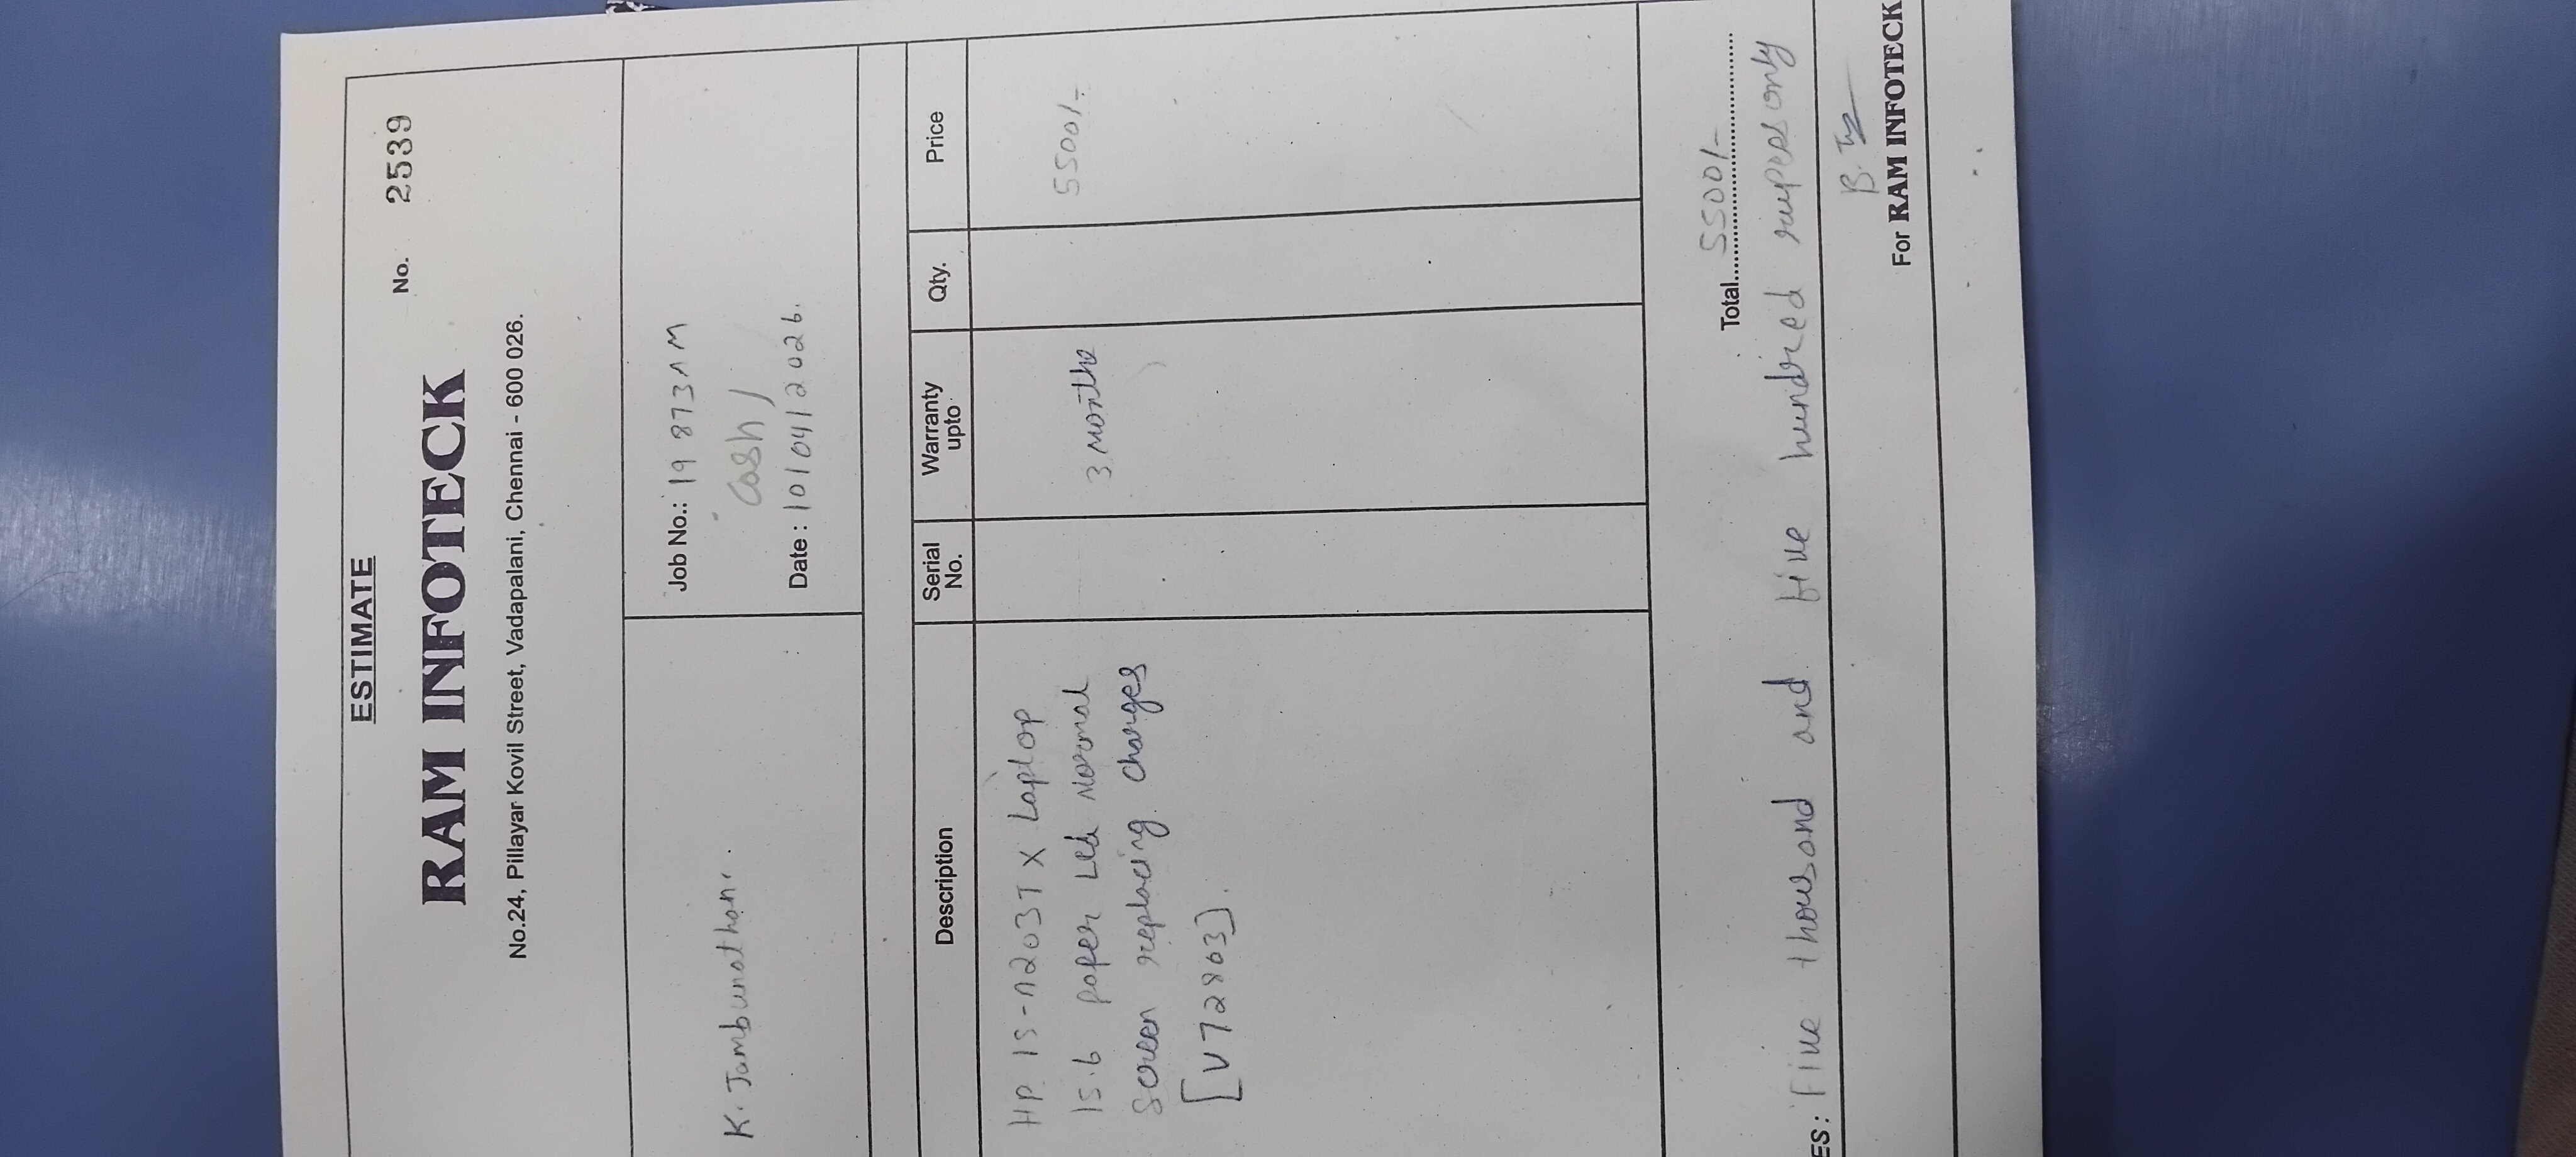 ESTIMATE
RAM INFOTECK
No. 2539
No.24, Pillayar Kovil Street, Vadapalani, Chennai - 600 026.
K. Jambunathan.
Job No.: 19873
Cash /
Date : 10/04/2026.
Description Serial No. Warranty upto Qty. Price
HP 15-n203TX Laptop
15.6 paper Led Normal 3 Months 5500/-
Screen replacing charges
[V72803].
Total 5500/-
ES : Five thousand and five hundred rupees only
For RAM INFOTECK